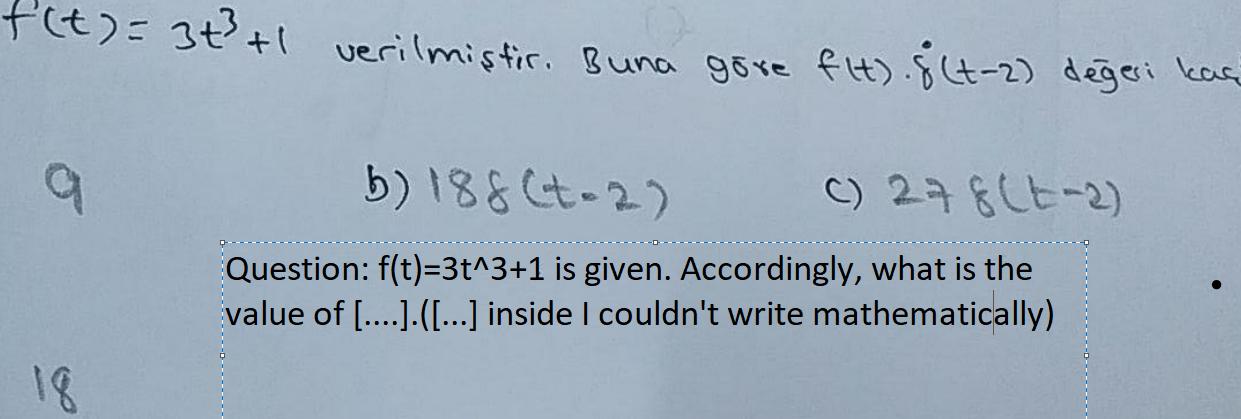 f(t) = 3t³+1 verilmiştir. Buna göre f(t).δ(t-2) değeri kaç
9 b) 18δ(t-2) c) 27δ(t-2)
Question: f(t)=3t^3+1 is given. Accordingly, what is the
value of [....].([...] inside I couldn't write mathematically)
18